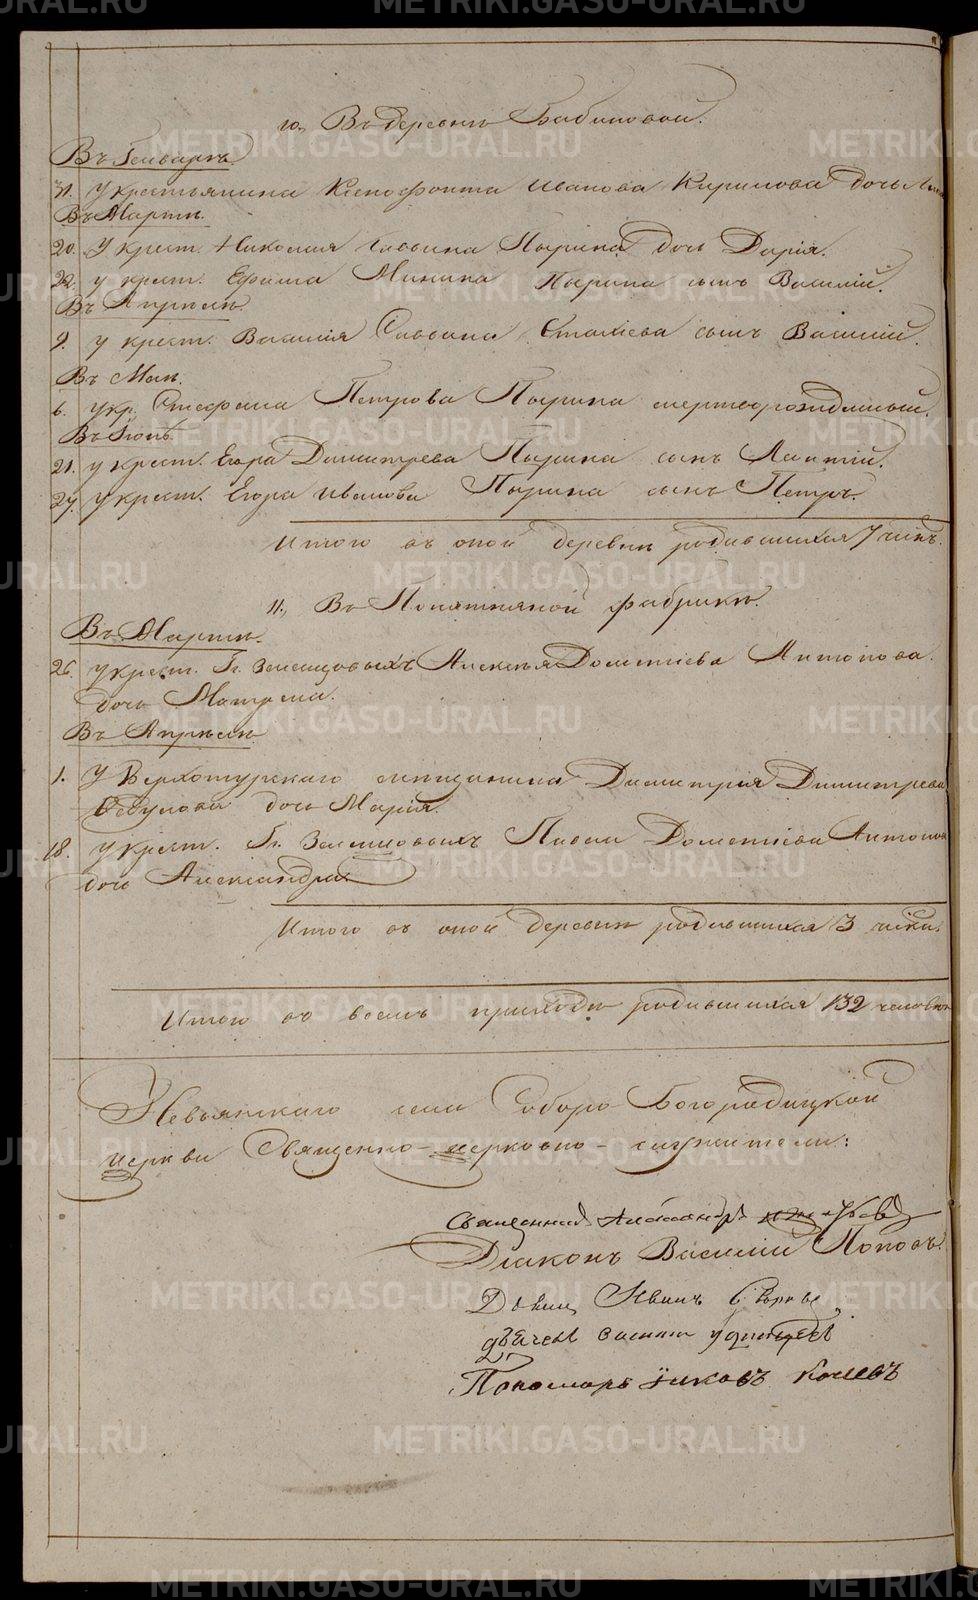 10, Въ деревнѣ Бабиновой.
Въ Генварѣ
31. У крестьянина Ксенофонта Иванова Кирилова дочь
Въ Мартѣ.
20. У крест. Николая Саввина Пырина дочь Дарія.
22. у крест. Ефима Минина Пырина сынъ Василій.
Въ Апрѣлѣ.
9. у крест. Василія Саввина сынъ Василій.
Въ Маѣ.
6. у кр. Стефана Петрова Пырина мертворожденный.
Въ Іюнѣ.
21. у крест. Егора Димитрева Пырина сынъ Леонтій.
27. у крест. Егора Иванова Пырина сынъ Петръ.
Итого въ оной деревнѣ родившихся 7 чел.
11., Въ фабрикѣ.
Въ Мартѣ.
26. у крест. Г. Алексѣя Дометіева Антонова
дочь Матрена.
Въ Апрѣлѣ
1. У Верхотурскаго мѣщанина Димитрія Димитрева
дочь Марія.
18. у крест. Г. Павла Дометіева Антонова
дочь Александра.
Итого въ оной деревнѣ родившихся 3 челов.
Итого во всемъ приходѣ родившихся 132 человѣк
Невьянскаго села Соборо-Богородицкой
церкви Священно-церковно-служители:
Священникъ Александръ
Діаконъ Василій Поповъ.
Пономарь Іаковъ
METRIKI.GASO-URAL.RU